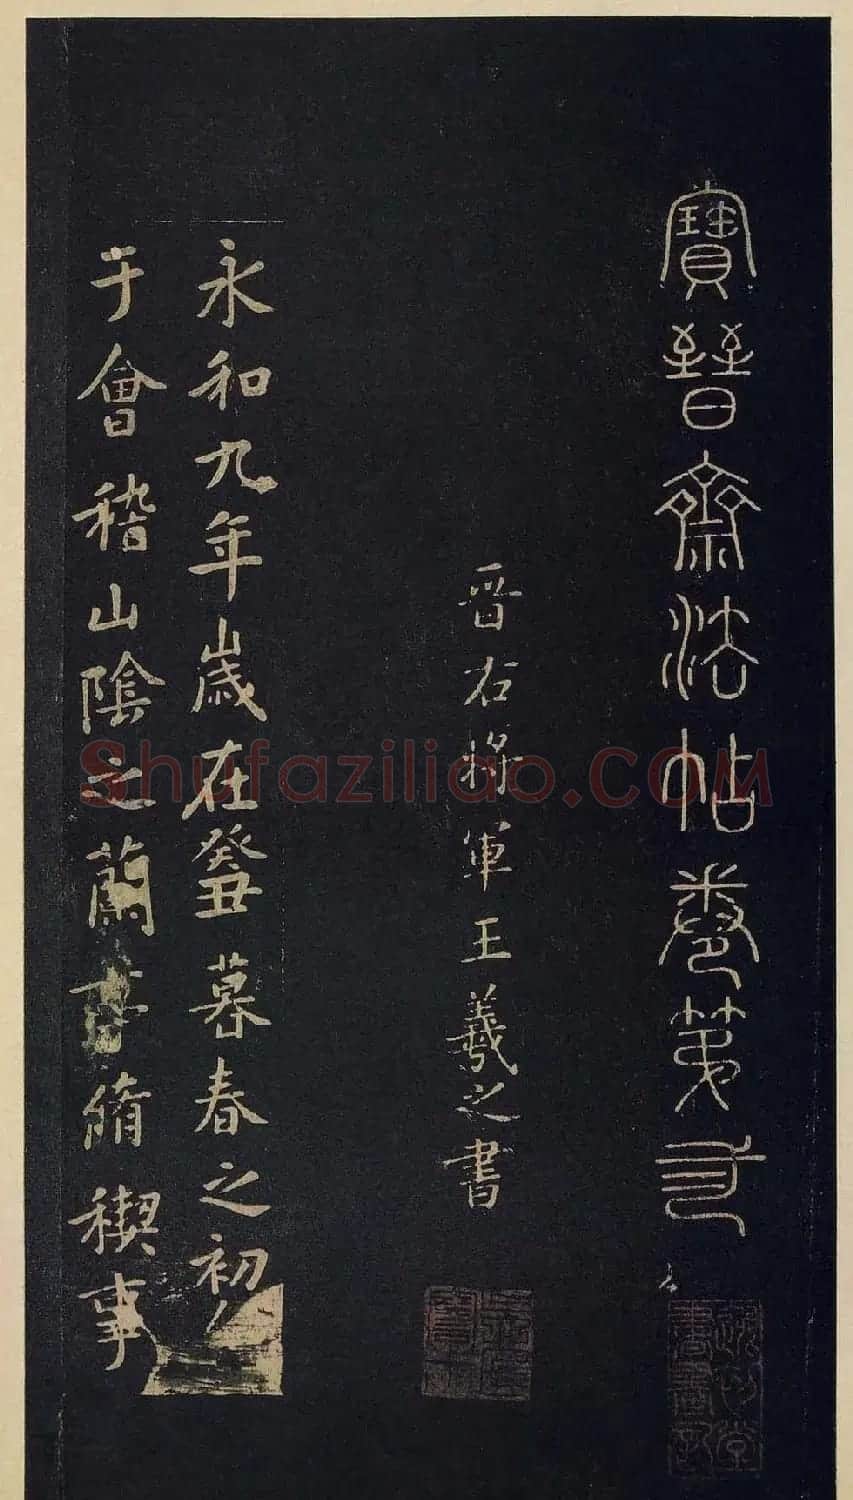 寶晉齋法帖卷第
晉右將軍王羲之書
永和九年歲在癸丑暮春之初
于會稽山陰之蘭亭脩稧事
Shufaziliao.COM